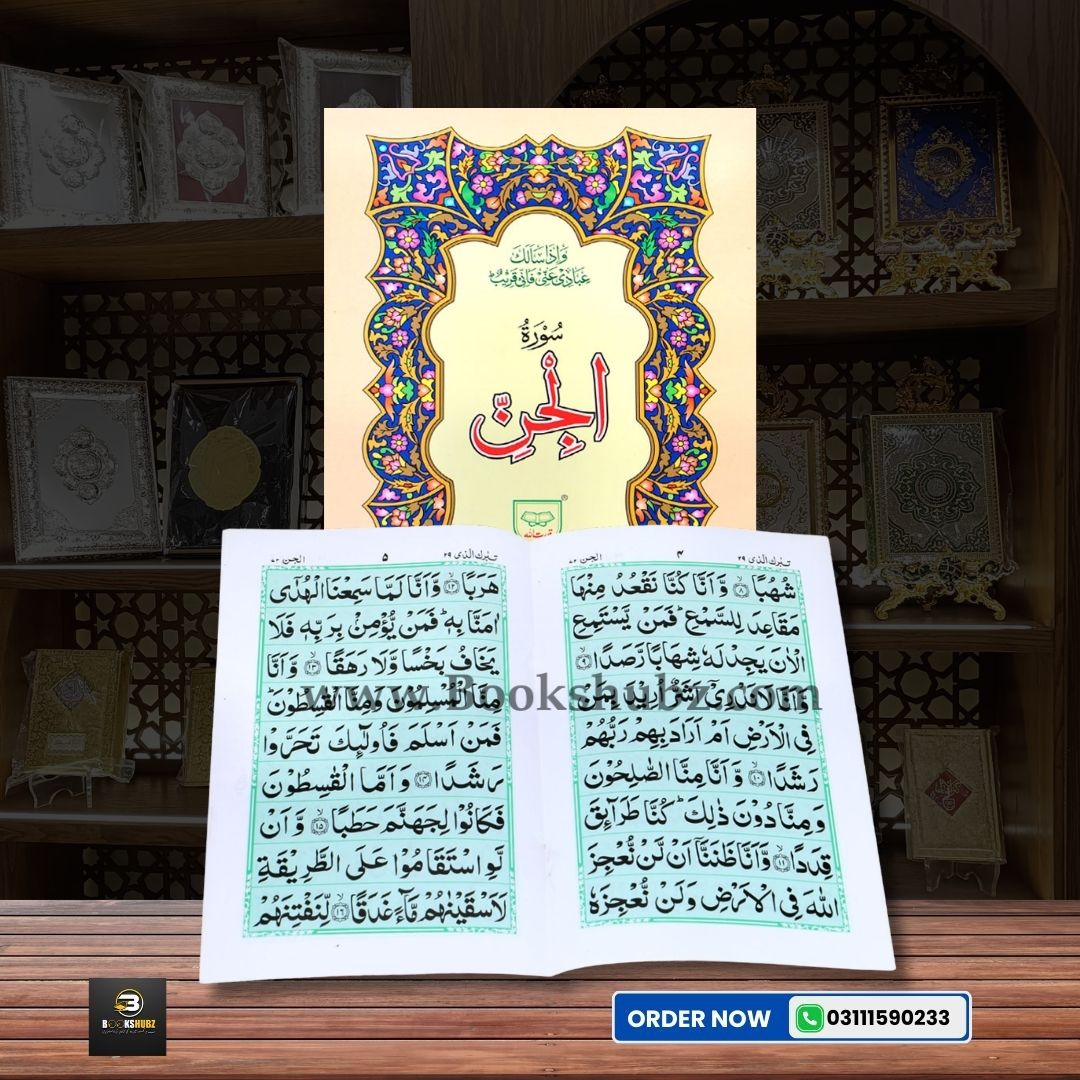 وَاِذَا سَاَلَكَ
عِبَادِیْ عَنِّیْ فَاِنِّیْ قَرِیْبٌ ؕ
سُوْرَةُ
الْجِنِّ
®
تبٰرك الذی ٢٩
۴
الجن ٧٢
شُهُبًا ۙ﴿۸﴾ وَّ اَنَّا كُنَّا نَقْعُدُ مِنْهَا
مَقَاعِدَ لِلسَّمْعِ ؕ فَمَنْ یَّسْتَمِعِ
الْاٰنَ یَجِدْ لَهٗ شِهَابًا رَّصَدًا ۙ﴿۹﴾
وَّ اَنَّا لَا نَدْرِیْۤ اَشَرٌّ اُرِیْدَ بِمَنْ
فِی الْاَرْضِ اَمْ اَرَادَ بِهِمْ رَبُّهُمْ
رَشَدًا ۙ﴿۱۰﴾ وَّ اَنَّا مِنَّا الصّٰلِحُوْنَ
وَ مِنَّا دُوْنَ ذٰلِكَ ؕ كُنَّا طَرَآىِٕقَ
قِدَدًا ۙ﴿۱۱﴾ وَّ اَنَّا ظَنَنَّاۤ اَنْ لَّنْ نُّعْجِزَ
اللّٰهَ فِی الْاَرْضِ وَ لَنْ نُّعْجِزَهٗ
تبٰرك الذی ٢٩
۵
الجن ٧٢
هَرَبًا ۙ﴿۱۲﴾ وَّ اَنَّا لَمَّا سَمِعْنَا الْهُدٰۤی
اٰمَنَّا بِهٖ ؕ فَمَنْ یُّؤْمِنْۢ بِرَبِّهٖ فَلَا
یَخَافُ بَخْسًا وَّ لَا رَهَقًا ۙ﴿۱۳﴾ وَّ اَنَّا
مِنَّا الْمُسْلِمُوْنَ وَ مِنَّا الْقٰسِطُوْنَ ؕ
فَمَنْ اَسْلَمَ فَاُولٰٓىِٕكَ تَحَرَّوْا
رَشَدًا ﴿۱۴﴾ وَ اَمَّا الْقٰسِطُوْنَ
فَكَانُوْا لِجَهَنَّمَ حَطَبًا ۙ﴿۱۵﴾ وَّ اَنْ
لَّوِ اسْتَقَامُوْا عَلَی الطَّرِیْقَةِ
لَاَسْقَیْنٰهُمْ مَّآءً غَدَقًا ۙ﴿۱۶﴾ لِّنَفْتِنَهُمْ
www.Bookshubz.com
BOOKSHUBZ
ORDER NOW
03111590233